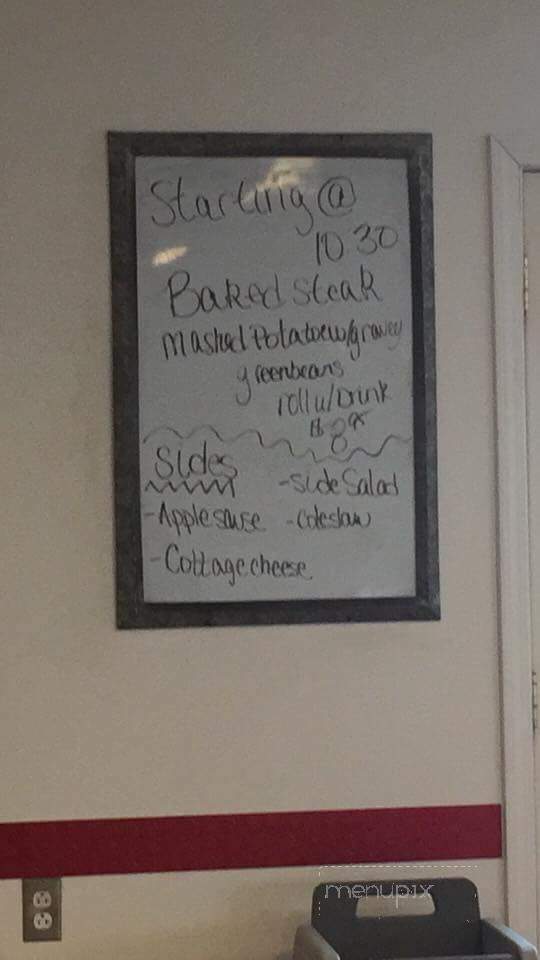 Starting @
10 30
Baked steak
Mashed Potatoe w/gravey
greenbeans
roll w/ Drink
$8.95
Sides
-Side Salad
-Applesause -Coleslaw
-Cottage cheese
menupix